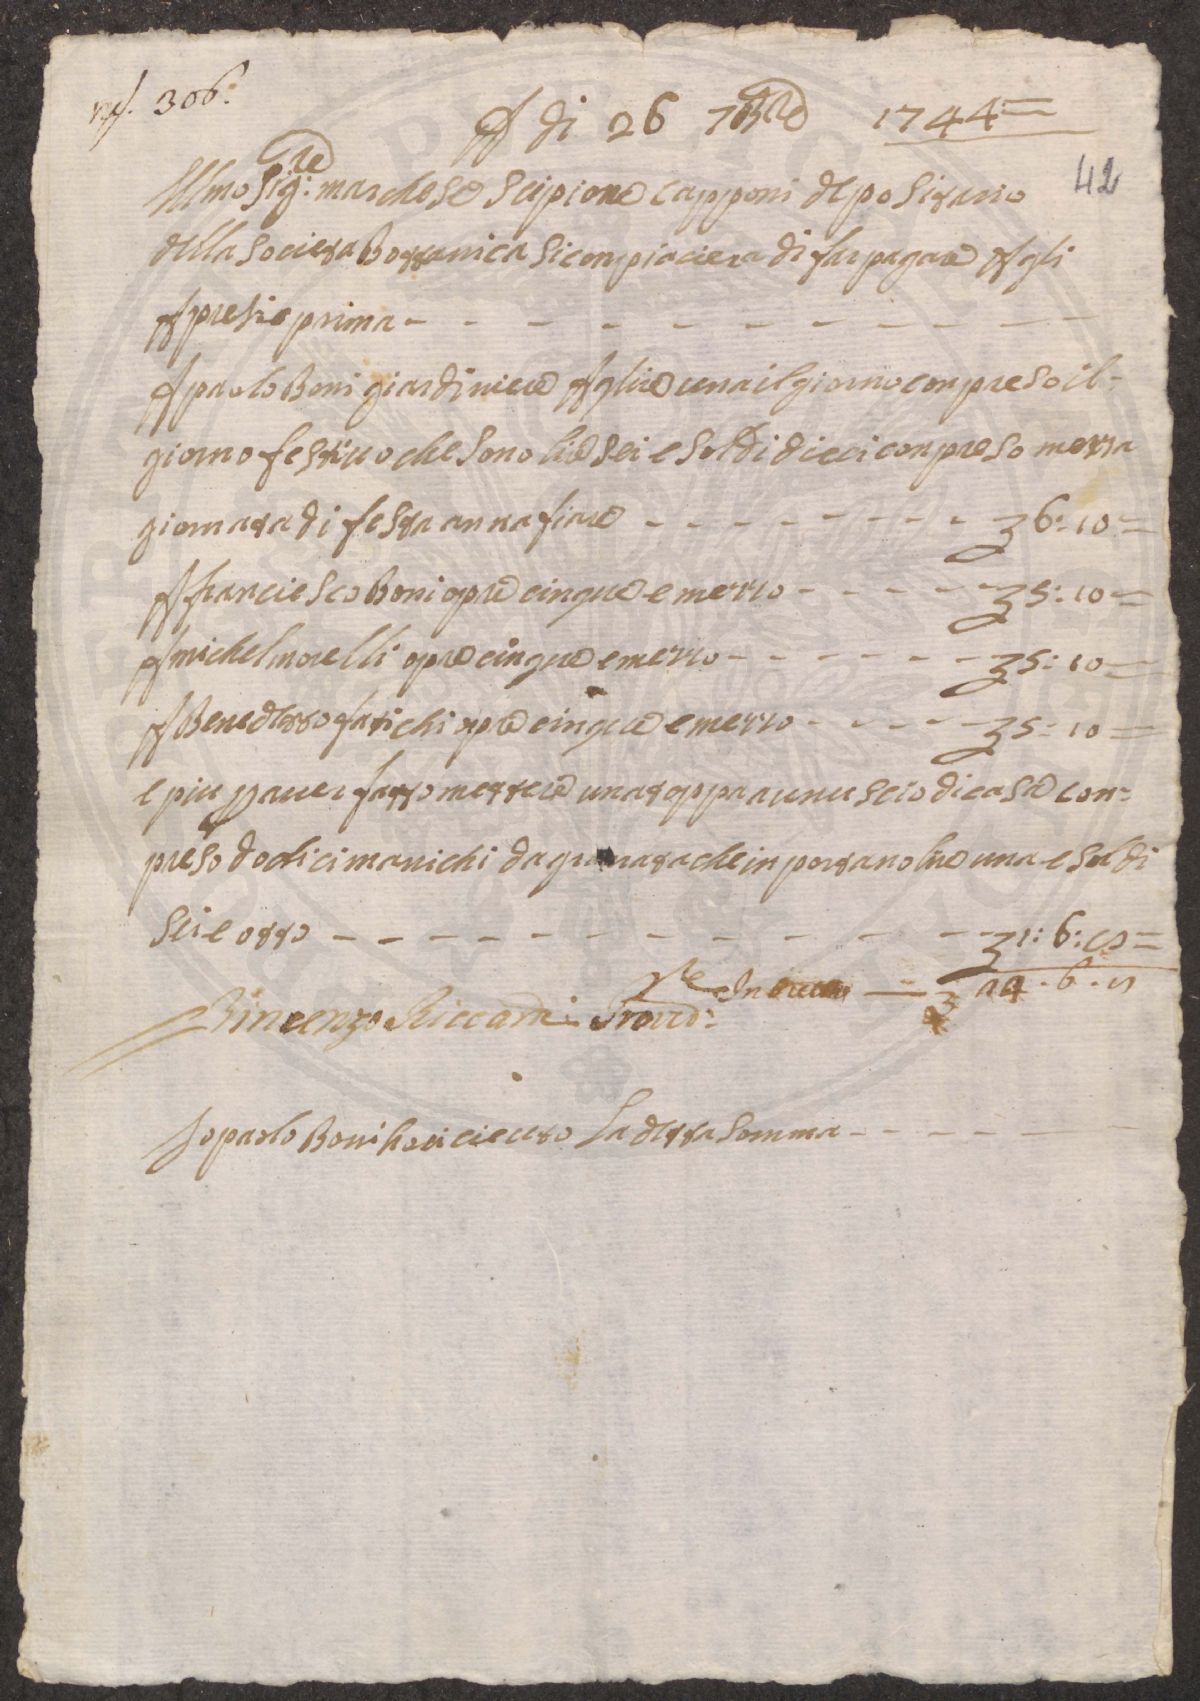 n.º 306:
A di 26 7bre 1744=
42
Illmo Sigre: marchese Scipione Capponi depositario
della Societta Bottanica Si conpiaciera di far pagare A gli
A presio prima - - - - - - - - - - -
A paolo Boni giardiniere A lire una il giorno conpreso il=
giorno festivo che Sono lire Sei e Soldi dieci conpreso mezza
giornata di festa - - - - - - - 36:10=
A franciesco Boni opre cinque e mezzo - - - - - 35:10=
A michel morelli opre cinque e mezzo - - - - - - 35:10=
A Benedetto fatichi opre cinque e mezzo - - - - - 35:10=
e piu p aver fatto mettere una toppa a un uscio di casa con=
preso dodici manichi da granata che inportano lire una e Soldi
Sei e otto - - - - - - - - - - - - - - 31:6:8=
24.6.8
Vincenzo Riccardi Provd:
Io paolo Boni ho ricieuto La detta Somma - - - - - -